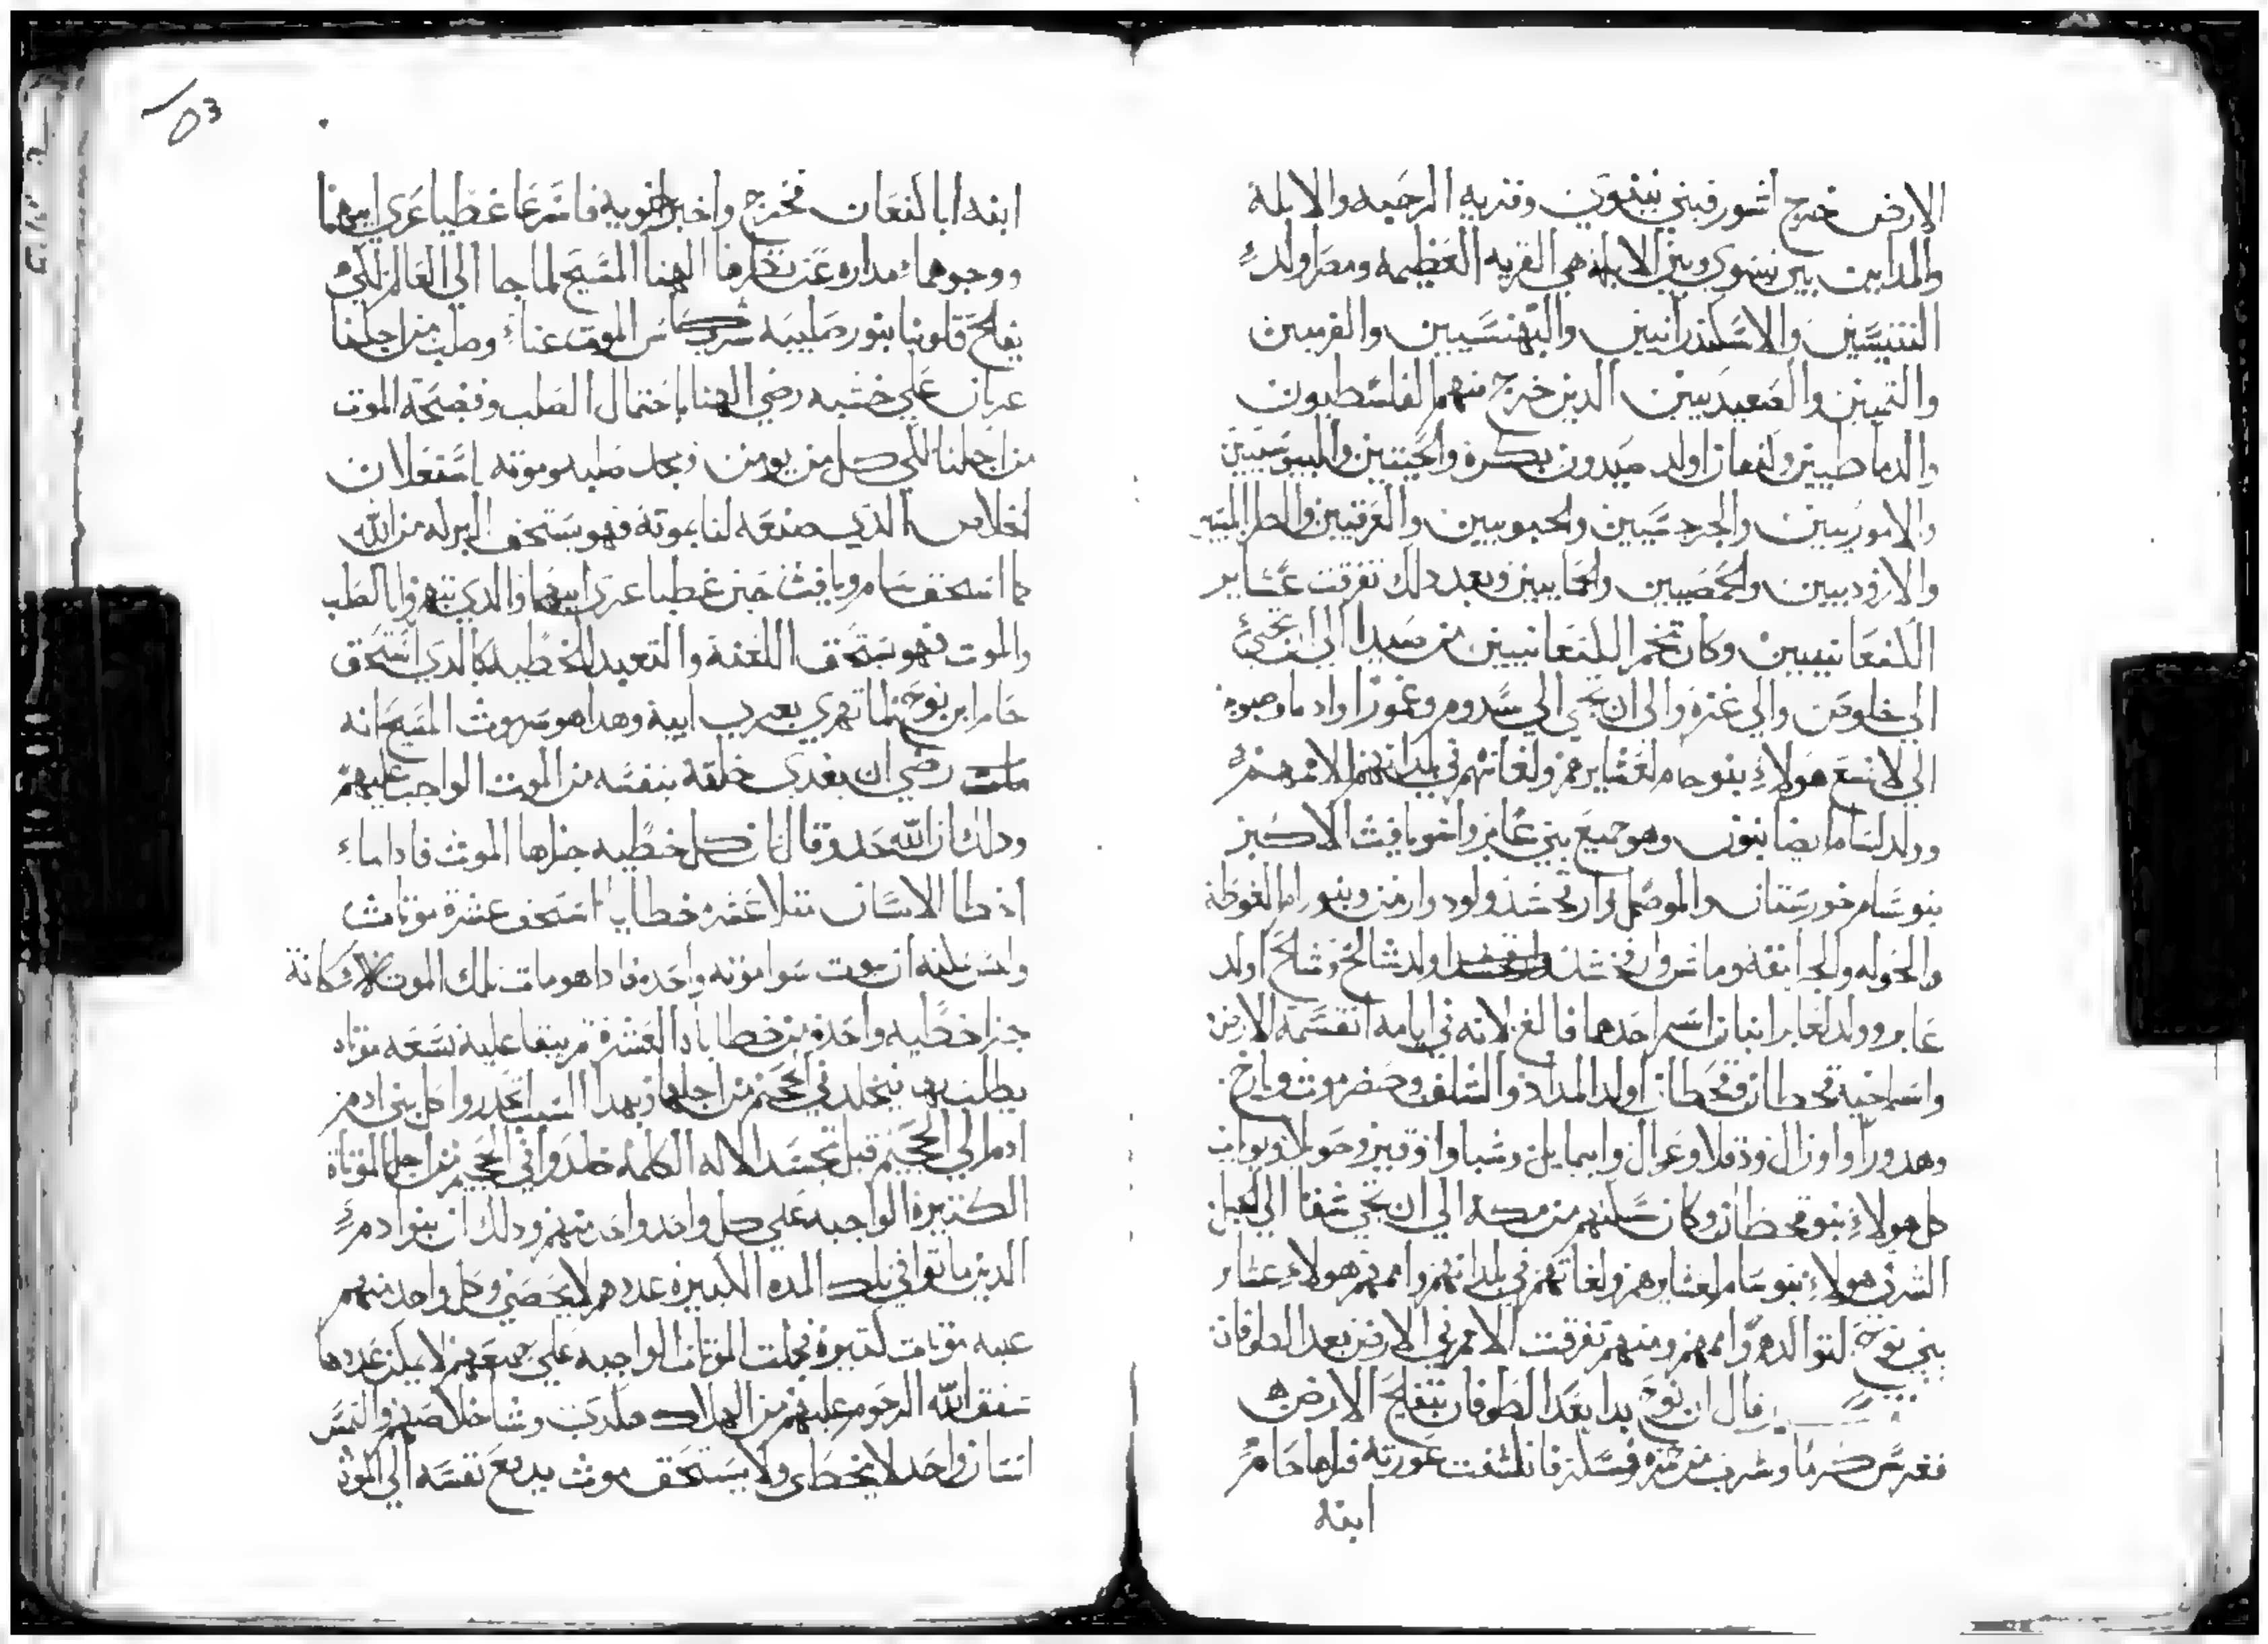 الارض خرج اشور فبني نينوي وقريه الرحبه والابله
والمداين بين نينوي وبين الابله هي القريه العظيمه ومصر اولد
التنيسيين والاسكندرانيين والبهنسيين والفرميين
والتميين والصعيديين الدين خرج منهم الفلسطيون
والدماطيين ولنعان اولد صيدون بكره والحيتيين واليبوسيين
والاموريين والجرجسيين والحبويين والعرقيين والطرابلسيين
والازوديين والحمصيين والحمايين وبعد دلك تفرقت عشاير
الكنعانييين وكان تخم الكنعانيين من صيدا الي ان تجي
الي خلوص والي غزه والي ان تجي الي سدوم وغمورا وادما وصبويم
الي لاشع هولاء بنو حام لعشايرهم ولغاتهم في بلدانهم لاممهم
وولد لسام ايضا بنون وهو جميع بني عابر واخو يافث الاكبر
بنو سام خورستان والموصل وارفخشد ولود وارمن وبنو رام الغوطه
والحوله والجرامقه وماش وارفخشد اولد شالخ وشالخ اولد
عابر وولد لعابر ابنان اسم احدها فالغ لانه في ايامه انقسمة الارض
واسم اخيه قحطان وقحطان اولد المداد والشلف وحضرموت ويارخ
وهدورا واوزال ودقلا وعوال وابيمايل وشبا واوفير وحويلا ويوباب
كل هولاء بنو قحطان وكان سكنهم من مكه الي ان تجي شفا الي الجبل
الشرقي هولاء بنو سام لعشايرهم ولغاتهم في بلدانهم واممهم هولاء عشاير
بني نوح لتوالدهم واممهم ومنهم تفرقت الامم في الارض بعد الطوفان
قال ان نوح بدا بعد الطوفان بتفلح الارض
فغرس كرما وشرب من خمره وسكر فانكشفت عورته فراها حام
ابنه
ابنه ابا لنعان فخرج واخبر اخويه فاسرعا غطيا عري ابيهما
ووجوهما مداره عن الهنا المسيح لما جا الي العالم لكي
يفلح قلوبنا بنور صليبه شرب كاس الموت عنا وصلب من اجلنا
عريان علي خشبه رضي الهنا باحتمال الصلب وفضيحة الموت
من اجلنا للي كل من يومن ويمجد صلبه وموته استعلان
الخلاص الدي صنعه لنا بموته فهو يستحق البركه من الله
كما استحق سام ويافث حين غطيا عري ابيهما والدي يتهزوا بالصلب
والموت فهو يستحق اللعنة والتعبد للخطيه كالدي استحق
حام ابن نوح لما تهزي بعري ابيه وهدا هو سر موت المسيح انه
مات رضي ان يفدي خلقه بنفسه من الموت الواجب عليهم
ودلك ان الله حد وقال ان كل خطيه جزاها الموت فادا ما
اخطا الانسان مثلا عشره خطايا استحق عشرة موتات
وليس يمكنه ان يموت سوا موته واحده فادا هو مات تلك الموت كانة
جزا خطيه واحده من خطاياه العشرة ثم يبقا عليه تسعه موتات
يطلب بها فيخلد في الجحيم من اجلها وبهدا السبب انحدروا كل بني ادم من
ادم الي الجحيم قبل تجسد الاله الكلمه خلدوا في الجحيم من اجل الموتات
الكتيرة الواجبه علي كل واحد واحد منهم ودلك ان بنو ادم
الدين ماتوا في تلك المده الكبيره عددهم لا يحصي وكل واحد منهم
عليه موتات كتيره فجملت الموتات الواجبه علي جميعهم لا يمكن عددها
شفق الله الرحوم عليهم من الهلاك وشا خلاصهم والتمس
انسان واحد لا يخطي ولا يستحق موت يدفع نفسه الي الموت